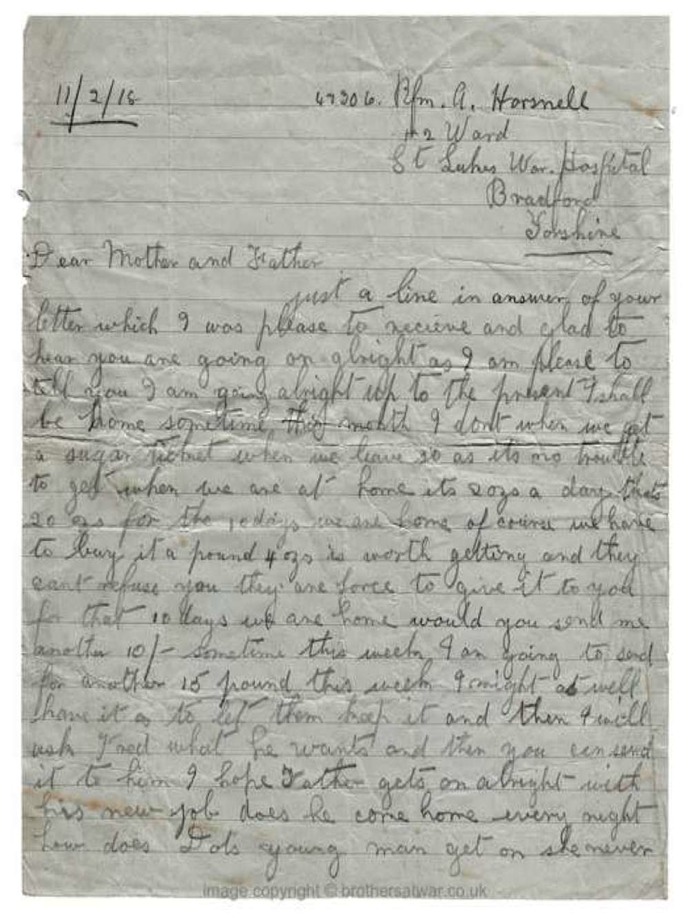 11/2/18
47306. Rfm. A. Horsnell
2 Ward
St Lukes War. Hospital
Bradford
Yorshire
Dear Mother and Father
just a line in answer of your
letter which I was please to recieve and glad to
hear you are going on alright as I am please to
tell you I am going alright up to the present I shall
be home sometime this month I dont when we get
a sugar ticket when we leave so as its no trouble
to get when we are at home its 2ozs a day thats
20 ozs for the 10days we are home of course we have
to buy it a pound 4 ozs is worth getting and they
cant refuse you they are force to give it to you
for that 10 days we are home would you send me
another 10/- sometime this week I am going to send
for another 15 pound this week I might as well
have it as to let them keep it and then I will
ask Fred what he wants and then you can send
it to him I hope Father gets on alright with
his new job does he come home every night
how does Dols young man get on she never
image copyright © brothersatwar.co.uk